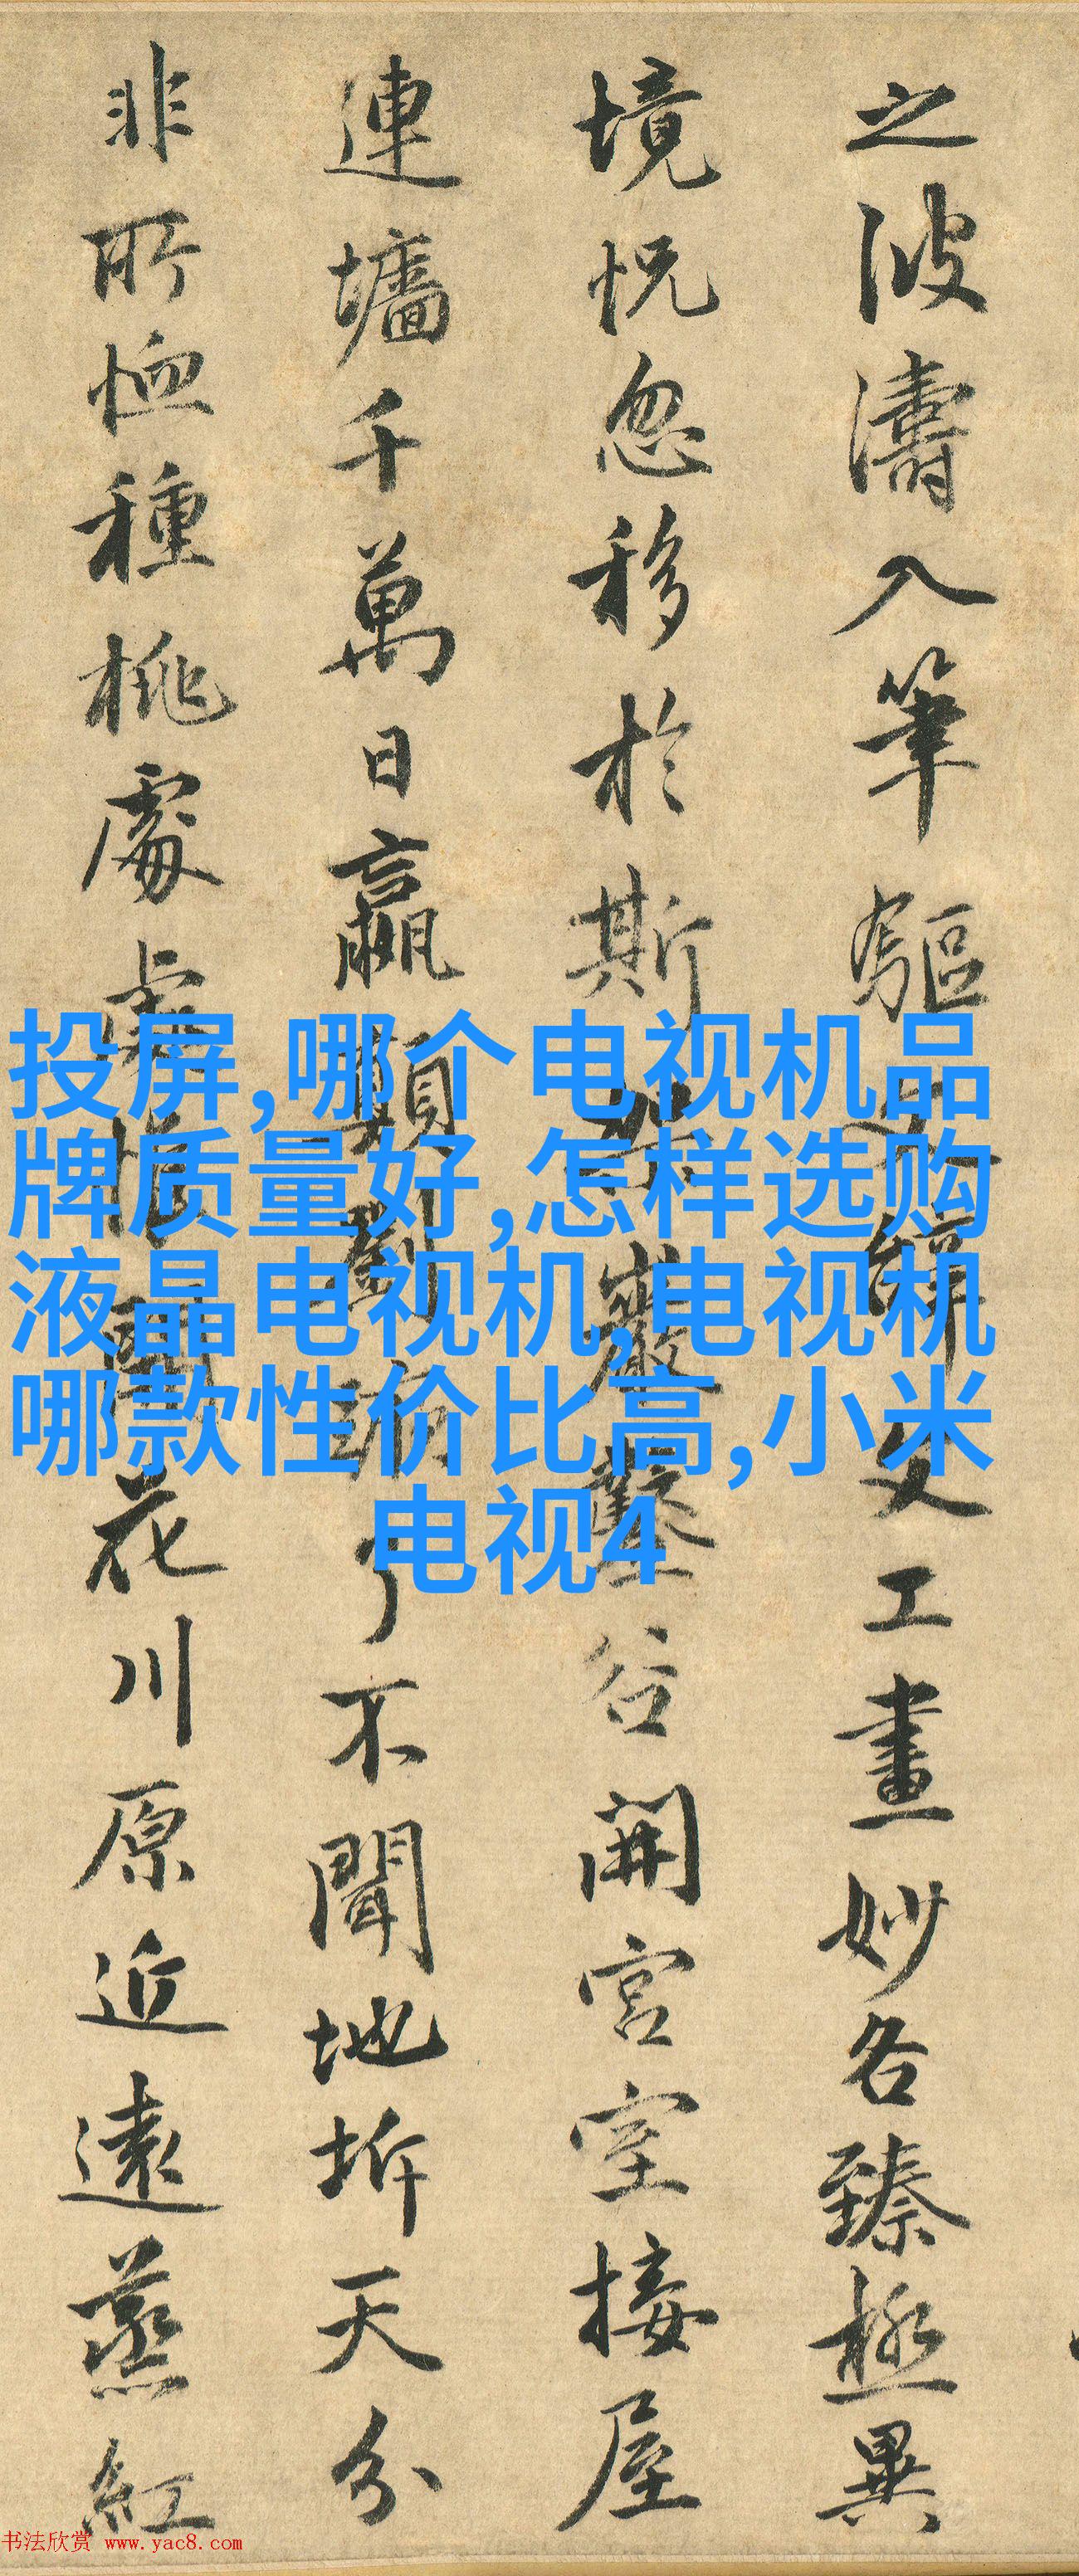 之波濤入筆驅文辭文工畫妙各臻極異
境怳忽移於斯架巖鑿谷開宮室接屋
連墻千萬日嬴顛劉蹶了不聞地坼天分
非所恤種桃處處惟開花川原近遠蒸紅
投屏,哪个电视机品
牌质量好,怎样选购
液晶电视机,电视机
哪款性价比高,小米
电视4
书法欣赏 www.yac8.com